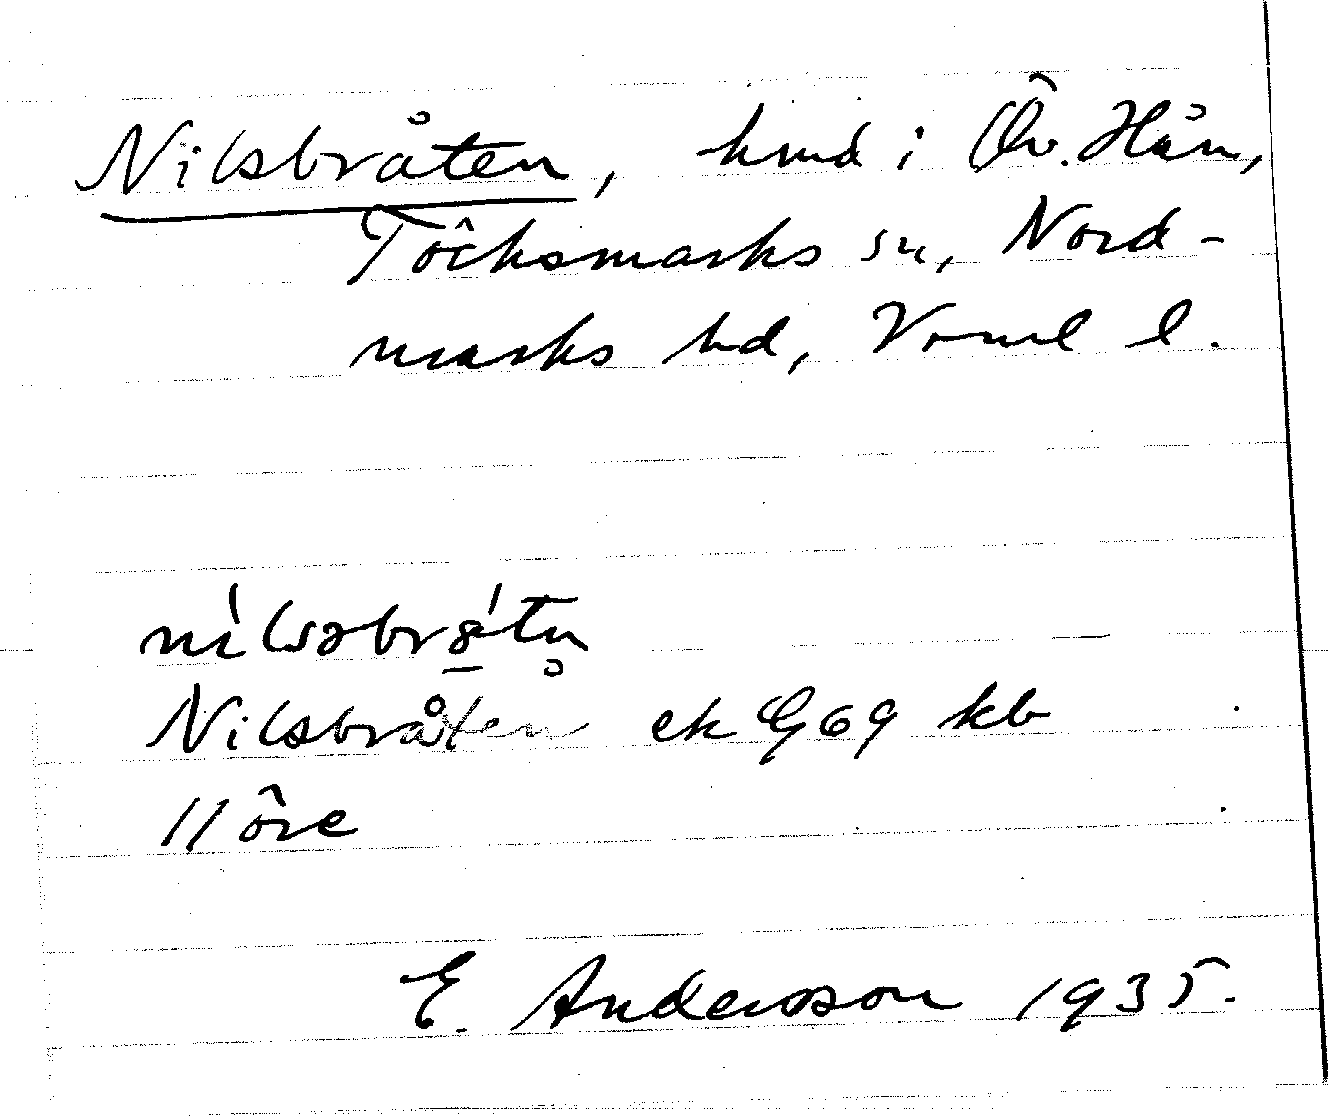 Nilsbråten, hmd i Öv. Hån,
Töcksmarks sn, Nord-
marks hd, Vrml l.
nílsəbrǻtn̥
Nilsbråten ek G69 kb
11 öre
E. Andersson 1935.